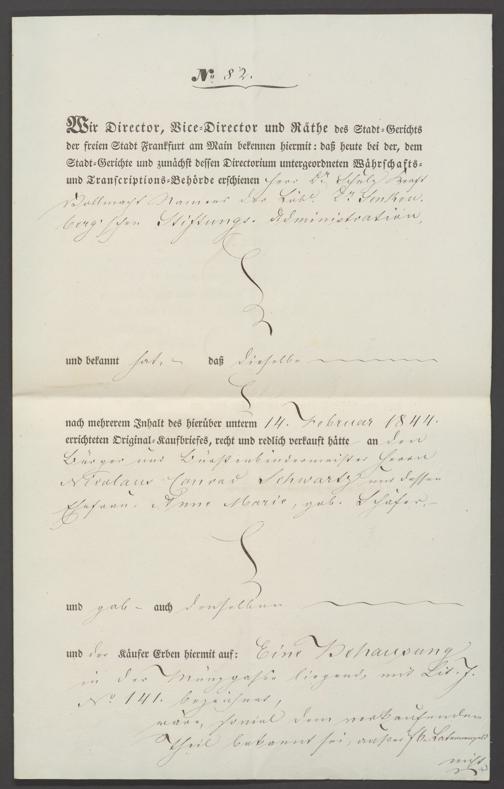 No. 82.
Wir Director, Vice-Director und Räthe des Stadt-Gerichts
der freien Stadt Frankfurt am Main bekennen hiermit: daß heute bei der, dem
Stadt-Gerichte und zunächst dessen Directorium untergeordneten Währschafts-
und Transcriptions-Behörde erschienen Herr Dr. Schulz Kraft
Vollmacht Namens der Löbl. Dr. Senken-
berg'schen Stiftungs-Administration,
und bekannt hat, daß dieselbe
nach mehrerem Inhalt des hierüber unterm 14. Februar 1844.
errichteten Original-Kaufbriefes, recht und redlich verkauft hätte an den
Bürger und Bürstenbindermeister Herrn
Nicolaus Conrad Schwartz und dessen
Ehefrau, Anne Marie, geb. Schäfer,
und gab auch denselben
und der Käufer Erben hiermit auf: Eine Behausung
in der Münzgasse liegend, mit Lit. J.
No. 141. bezeichnet,
wäre, soviel dem verkaufenden
Theil bekannt sei, außer
nicht